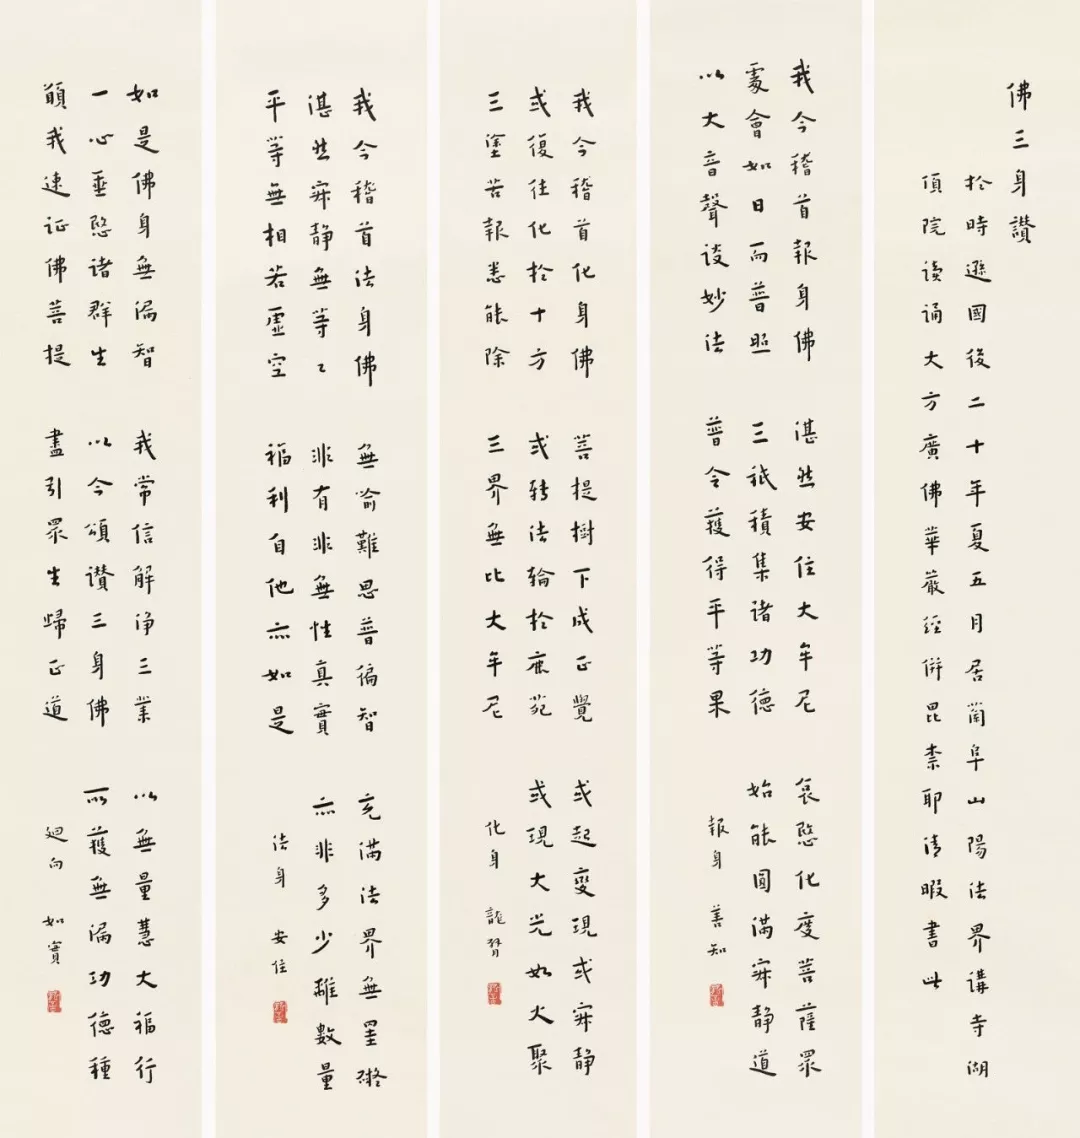 佛三身讚
於時遜國後二十年夏五月居蘭阜山陽法界講寺湖
頂院讀誦大方廣佛華嚴經併毘柰耶清暇書此
我今稽首報身佛 湛然安住大牟尼 哀愍化度菩薩眾
處會如日而普照 三祇積集諸功德 始能圓滿寂靜道
以大音聲談妙法 普令獲得平等果 報身 善知
我今稽首化身佛 菩提樹下成正覺 或起變現或寂靜
或復往化於十方 或轉法輪於鹿苑 或現大光如火聚
三塗苦報悉能除 三界無比大牟尼 化身 龍臂
我今稽首法身佛 無喻難思普徧智 充滿法界無罣礙
湛然寂靜無等〻 非有非無性真實 亦非多少離數量
平等無相若虛空 福利自他亦如是 法身 安住
如是佛身無漏智 我常信解淨三業 以無量慧大福行
一心垂愍諸群生 以今頌讚三身佛 所獲無漏功德種
願我速証佛菩提 盡引眾生歸正道 迴向 如實